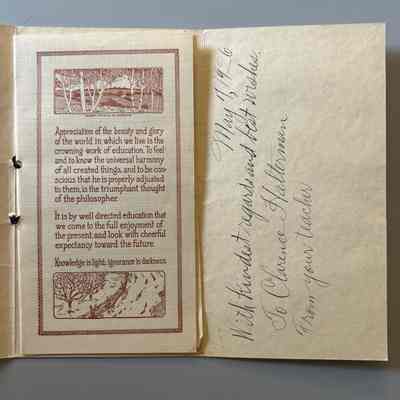 Appreciation of the beauty and glory
of the world in which we live is the
crowning work of education. To feel
and to know the universal harmony
of all created things, and to be con-
scious that he is properly adjusted
to them, is the triumphant thought
of the philosopher.
It is by well directed education that
we come to the full enjoyment of
the present, and look with cheerful
expectancy toward the future.
Knowledge is light; ignorance is darkness.
May 1, 1926
With kindest regards and best wishes.
To Clarence Halterman
From your teacher